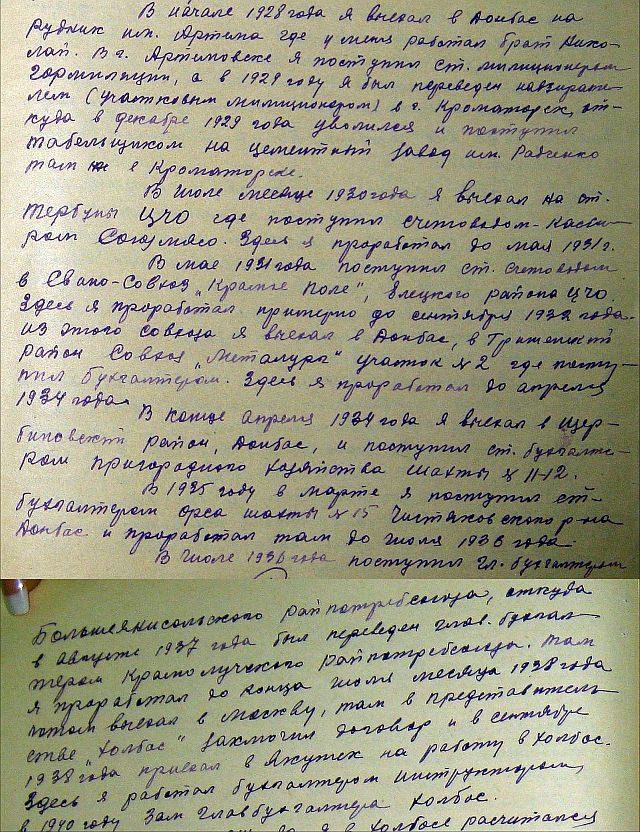 В начале 1928 года я выехал в Донбас на
рудник им. Артема где у меня работал брат Нико-
лай. В г. Артемовске я поступил ст. милиционером
гормилиции, а в 1929 году я был переведен надзирате-
лем (участковым милиционером) в г. Краматорск, от-
куда в декабре 1929 года уволился и поступил
табельщиком на цементный завод им. Радченко
там же в Краматорске.
В июле месяце 1930 года я выехал на ст.
Тербуны ЦЧО где поступил счетоводом-касси-
ром Союзмясо. Здесь я проработал до мая 1931 г.
В мае 1931 года поступил ст. счетоводом
в Свино-Совхоз "Красное Поле", Елецкого района ЦЧО.
Здесь я проработал примерно до сентября 1932 года.
из этого совхоза я выехал в Донбас, в Гришинский
район Совхоз "Металург" участок № 2 где посту-
пил бухгалтером. Здесь я проработал до апреля
1934 года.
В конце апреля 1934 года я выехал в Щер-
биновский район, Донбас, и поступил ст. бухгалте-
ром пригородного хозяйства шахты № 11-12.
В 1935 году в марте я поступил ст.
бухгалтером Орса шахты № 15 Чистяковского р-на
Донбас и проработал там до июля 1936 года.
В июле 1936 года поступил гл. бухгалтером
Большеянисольского райпотребсоюза, откуда
в августе 1937 года был переведен глав. бухгал-
тером Краснолучского райпотребсоюза. Там
я проработал до конца июля месяца 1938 года
потом выехал в Москву, там в представитель-
стве "Холбос" заключил договор и в сентябре
1938 года приехал в Якутск на работу в Холбос.
Здесь я работал бухгалтером инструктором,
в 1940 году Зам главбухгалтера Холбос.
я в Холбосе расчитался